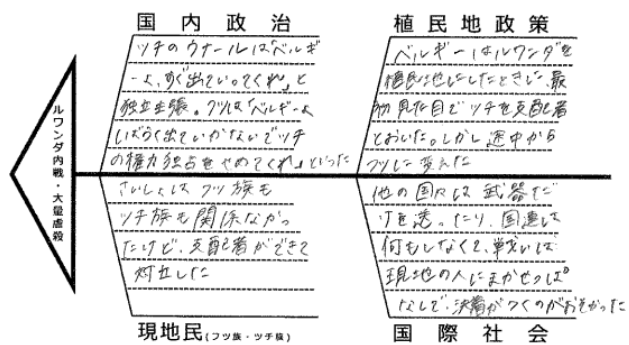 国内政治
ツチのウナールは「ベルギ
ーよ、すぐ出ていってくれ」と
独立主張。フツは「ベルギーよ
しばらく出ていかないでツチ
の権力独占をやめてくれ」といった
植民地政策
ベルギーはルワンダを
植民地にしたときに、最
初見た目でツチを支配者
とおいた。しかし途中から
フツに変えた
ルワンダ内戦・大量虐殺
さいしょは フツ族も
ツチ族も関係なかっ
たけど、支配者ができて
対立した
現地民(フツ族・ツチ族)
他の国々は武器だ
けを送ったり、国連は
何もしなくて、戦いは
現地の人にまかせっぱ
なしで、決着がつくのがおそかった
国際社会